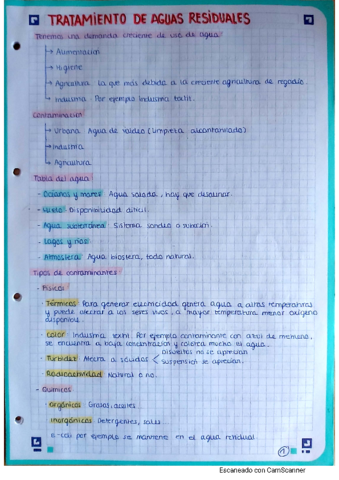 TRATAMIENTO DE AGUAS RESIDUALES
Tenemos una demanda creciente de uso de agua:
→ Alimentación
→ Higiene
→ Agricultura. La que más debido a la creciente agricultura de regadío.
→ Industria. Por ejemplo Industria textil.
Contaminación
→ Urbana. Agua de valdeo (limpieza alcantarillado)
→ Industria
→ Agricultura
Tabla del agua
- Océanos y mares. Agua salada, hay que desalinar.
- Hielo. Disponibilidad difícil.
- Agua subterránea. Sistema sondeo o
- Lagos y ríos
- Atmósfera. Agua biosfera, todo natural.
Tipos de contaminantes
- Físicos
- Térmicos. Para generar electricidad genera agua a altas temperaturas
y puede afectar a los seres vivos, a mayor temperatura menor oxígeno
disponible.
- Color. Industria textil. Por ejemplo contaminante con azul de metileno,
se encuentra a baja concentración y colorea mucho el agua.
- Turbidez. Afecta a sólidos < disueltos no se aprecian
suspensión se aprecian.
- Radioactividad. Natural o no.
- Químicos
- Orgánicos. Grasas, aceites
- Inorgánicos. Detergentes, sales...
por ejemplo se mantiene en el agua residual.
1
Escaneado con CamScanner